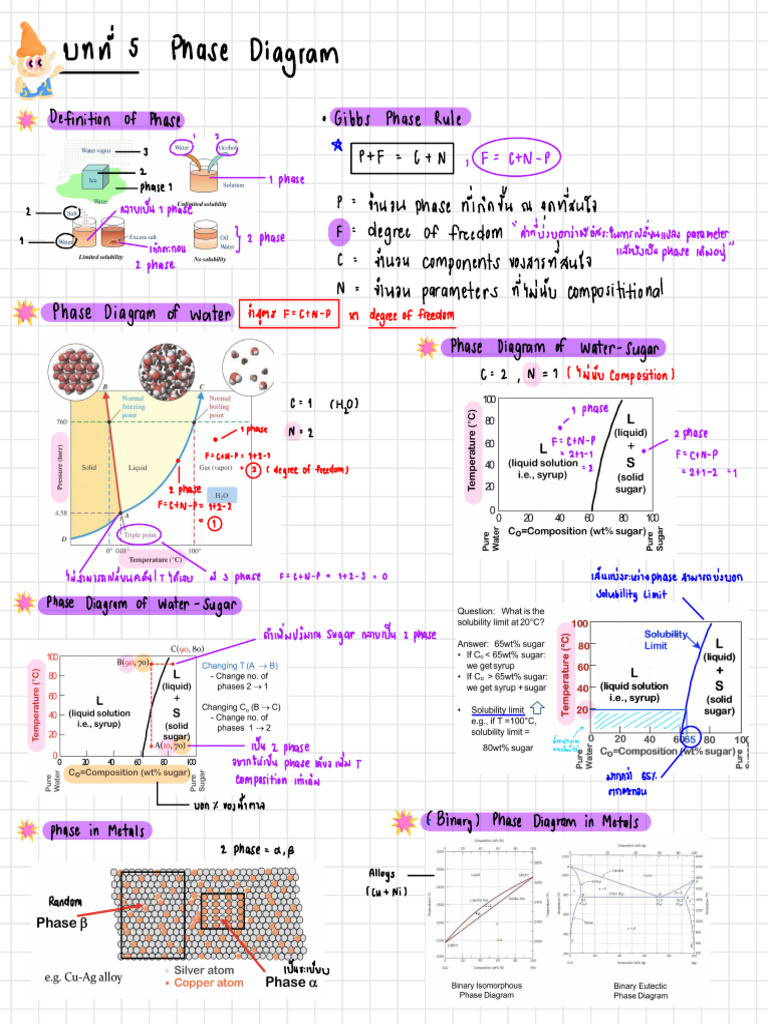 บทที่ 5 Phase Diagram
Definition of Phase
Water vapor 3
2
Ice
phase 1
Water
1 2
Water Alcohol
1 phase
Solution
Unlimited solubility
2 Salt
กลายเป็น 1 phase
1 Water
Excess salt
เกิดตะกอน
2 phase
Limited solubility
Oil
Water
2 phase
No solubility
• Gibbs Phase Rule
P+F = C+N , F = C+N-P
P = จำนวน phase ที่เกิดขึ้น ณ จุดที่สนใจ
F = degree of freedom
C = จำนวน components ของสารที่สนใจ
N = จำนวน parameters ที่ไม่นับ compositional
Phase Diagram of Water
F = C+N-P หา degree of freedom
B C
760
Normal
freezing
point
Normal
boiling
point
Pressure (torr)
Solid
Liquid
Gas (vapor)
H₂O
4.58
A
D
Triple point
0° 100°
Temperature (°C)
C = 1 (H₂O)
N = 2
1 phase
F = C+N-P = 1+2-1
= 2 (degree of freedom)
2 phase
F = C+N-P = 1+2-2
= 1
มี 3 phase F = C+N-P = 1+2-3 = 0
Phase Diagram of Water-Sugar
C = 2 , N = 1 (ไม่นับ composition)
Temperature (°C)
100
80
60
40
20
0
1 phase
F = C+N-P
= 2+1-1
= 2
L
(liquid solution
i.e., syrup)
L
(liquid)
+
S
(solid
sugar)
2 phase
F = C+N-P
= 2+1-2 = 1
0 20 40 60 80 100
Co=Composition (wt% sugar)
Pure
Water
Pure
Sugar
Phase Diagram of Water-Sugar
ถ้าเพิ่มปริมาณ sugar กลายเป็น 2 phase
C(90, 80)
B(90, 70)
A(10, 70)
Temperature (°C)
100
80
60
40
20
0
L
(liquid solution
i.e., syrup)
L
(liquid)
+
S
(solid
sugar)
0 20 40 60 80 100
Co=Composition (wt% sugar)
Pure
Water
Pure
Sugar
Changing T (A → B)
- Change no. of
phases 2 → 1
Changing Co (B → C)
- Change no. of
phases 1 → 2
เป็น 2 phase
composition เท่าเดิม
บอก % ของน้ำตาล
Question: What is the
solubility limit at 20°C?
Answer: 65wt% sugar
• If Co < 65wt% sugar:
we get syrup
• If Co > 65wt% sugar:
we get syrup +sugar
• Solubility limit
e.g., if T =100°C,
solubility limit =
80wt% sugar
เส้นแบ่งระหว่าง phase สามารถบ่งบอก
solubility limit
Temperature (°C)
100
80
60
40
20
0
Solubility
Limit
L
(liquid solution
i.e., syrup)
L
(liquid)
+
S
(solid
sugar)
0 20 40 60 65 80 100
Co=Composition (wt% sugar)
Pure
Water
Pure
Sugar
มากกว่า 65%
ตกตะกอน
Phase in Metals
2 phase = α, β
Random
Phase β
เป็นระเบียบ
Phase α
e.g. Cu-Ag alloy
Silver atom
Copper atom
(Binary) Phase Diagram in Metals
Alloys
(Cu + Ni)
Binary Isomorphous
Phase Diagram
Binary Eutectic
Phase Diagram